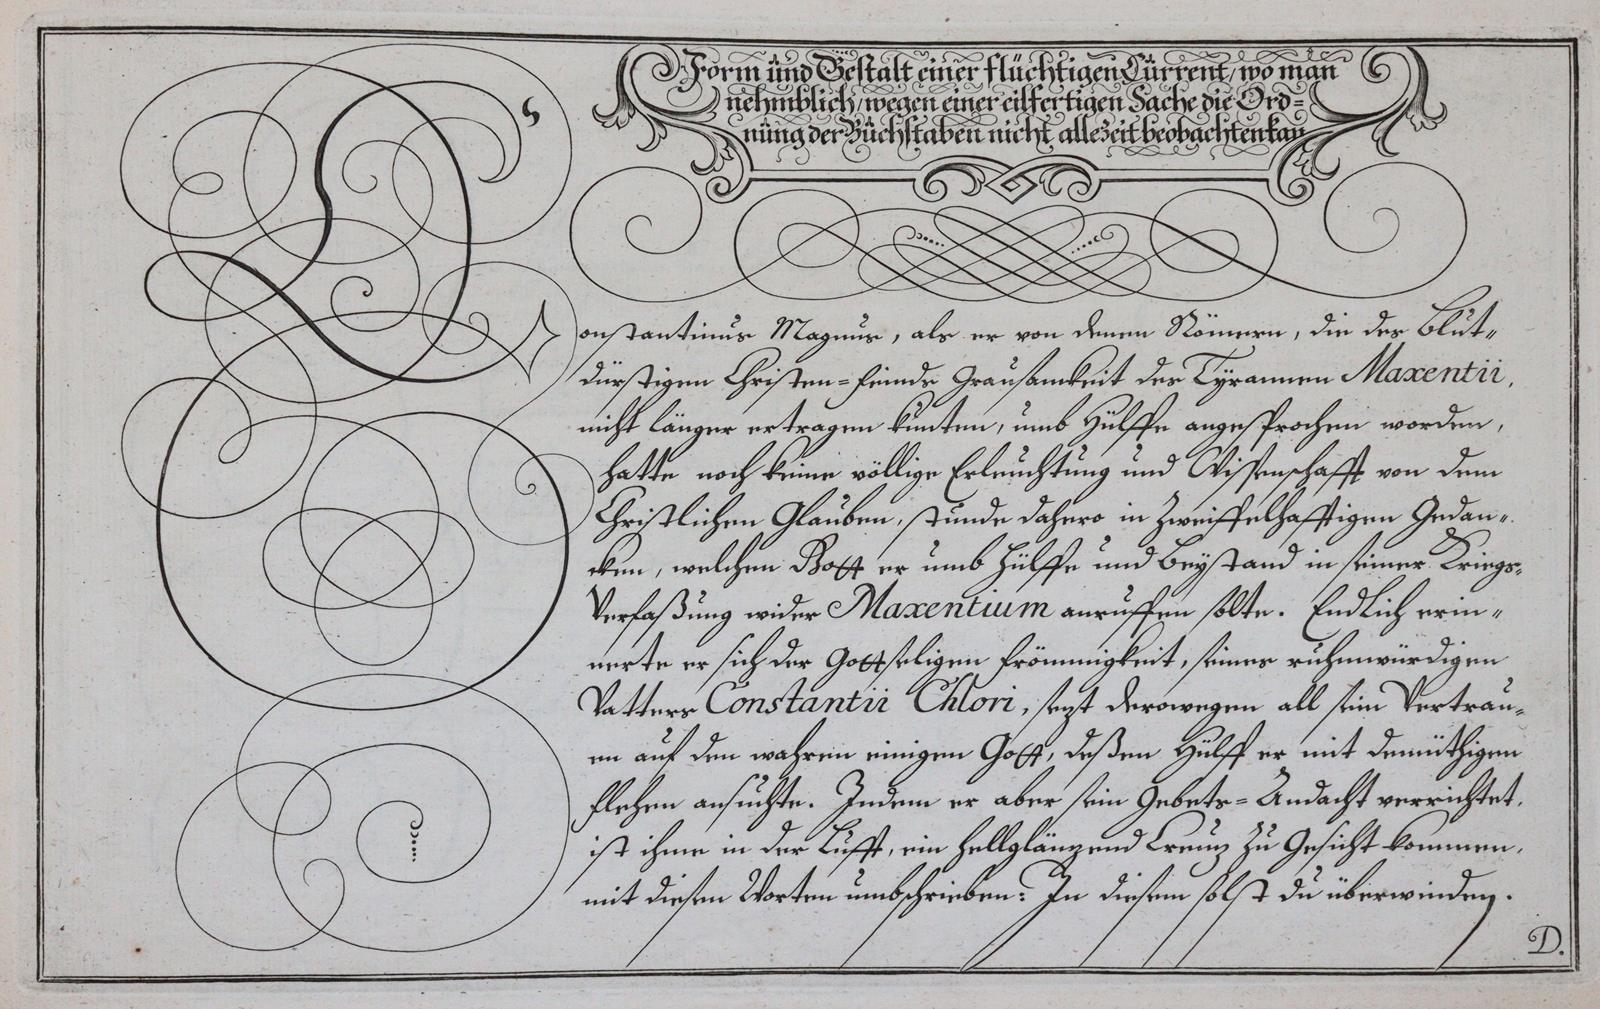 Form und Gestalt einer flüchtigen Current, wo man
nehmblich, wegen einer eilfertigen Sache die Ord=
nung der Buchstaben nicht allezeit beobachten kan
Constantinus Magnus, als er von denen Römern, die des Blut=
dürstigen Christen=Feinds Grausamkeit des Tyrannen Maxentii,
nicht länger ertragen kunten, umb Hülffe angesprochen worden,
hatte noch keine völlige Erleuchtung und Wissenschafft von dem
Christlichen Glauben, stunde dahero in Zweiffelhafftigen Gedan=
cken, welchen Gott er umb Hülffe und Beystand in seiner Kriegs=
Verfaßung wider Maxentium anruffen solte. Endlich erin=
nerte er sich der Gottseligen Frömmigkeit, seines ruhmwürdigen
Vatters Constantii Chlori, setzt derowegen all sein Vertrau=
en auf den wahren einigen Gott, deßen Hülff er mit demüthigen
flehen ansuchte. Indem er aber sein Gebets=Andacht verrichtet,
ist ihme in der Lufft, ein hellglänzend Creutz zu Gesicht kommen,
mit diesen Worten umbschrieben: In diesem solst du überwinden.
D.